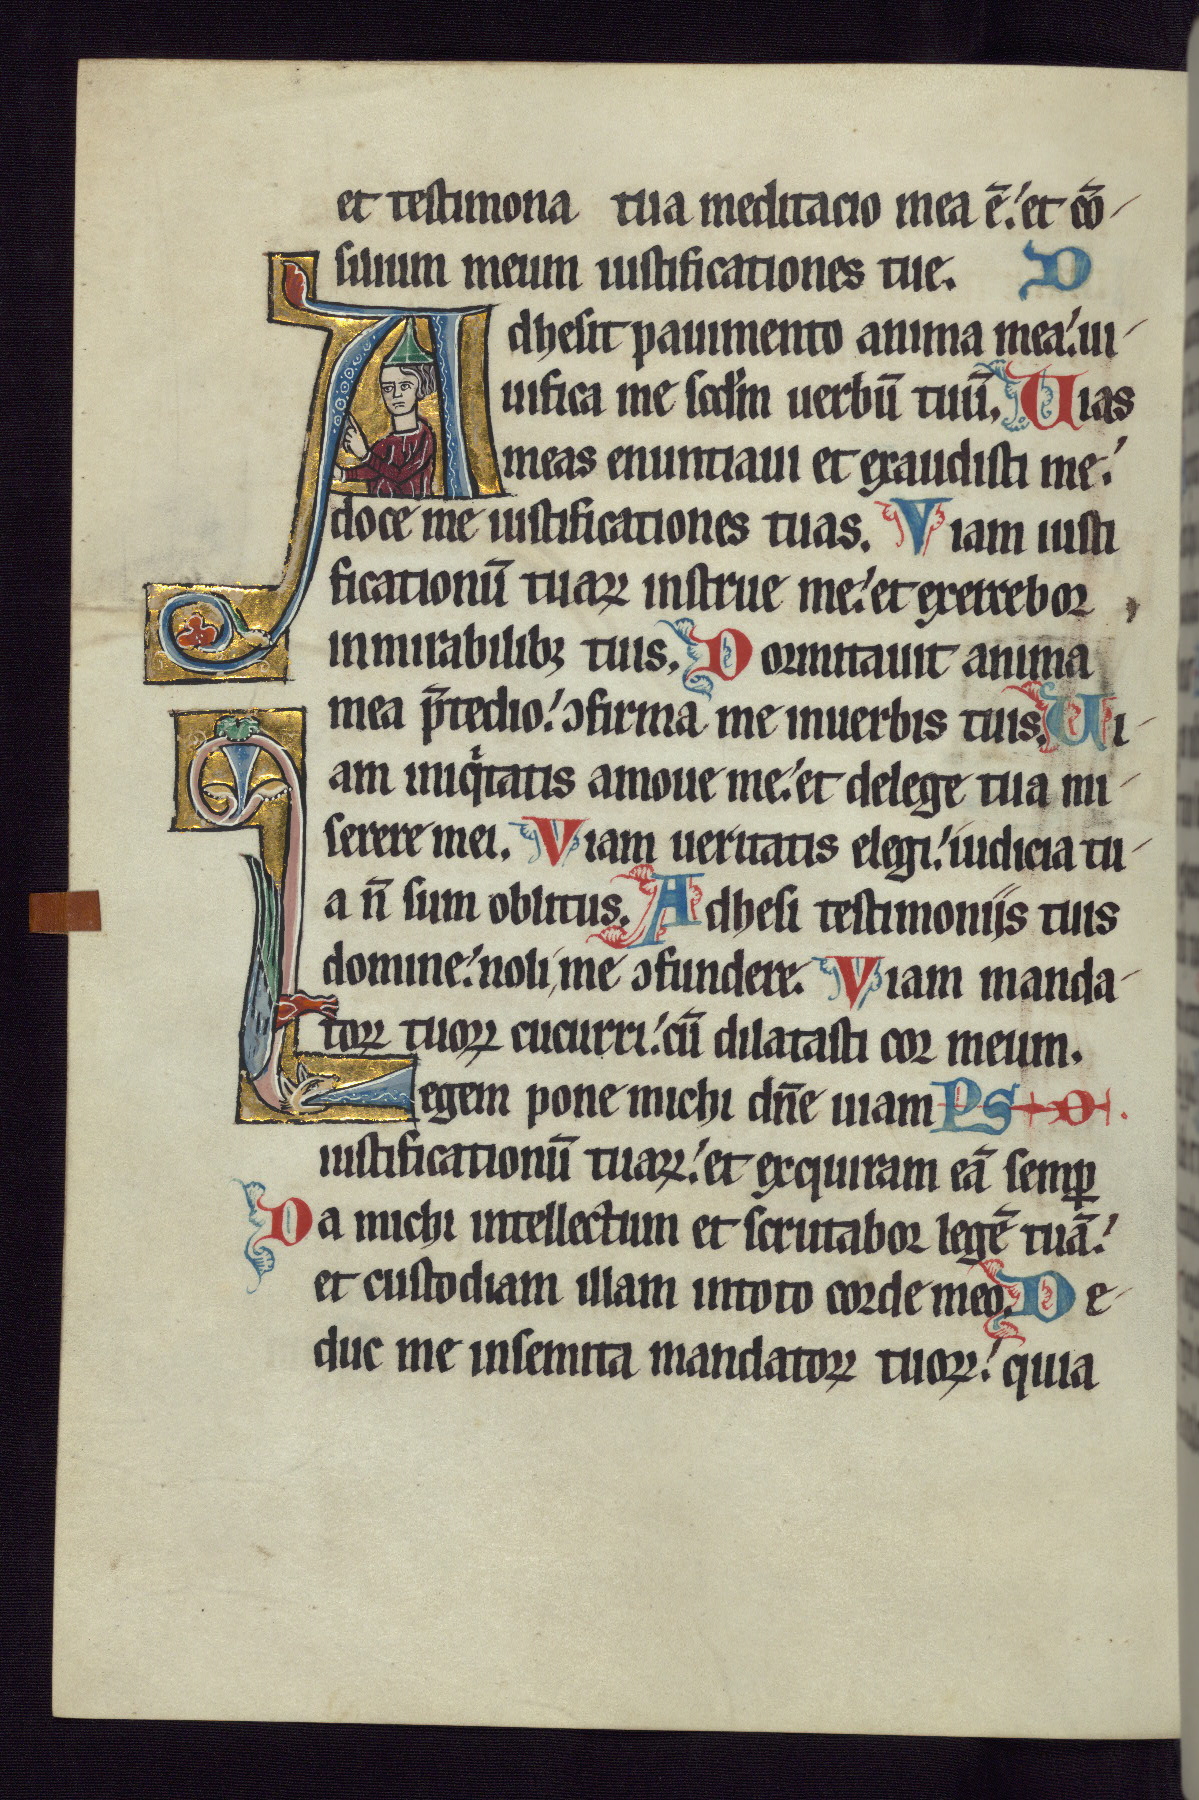 et testimona tua meditacio mea ē. et cō-
silium meum iustificationes tue. D
Adhesit pauimento anima mea. ui-
uifica me scd'm uerbū tuū. Uias
meas enuntiaui et exaudisti me.
doce me iustificationes tuas. Viam iusti
ficationū tuaꝝ instrue me. et exerrebor
in mirabilibꝫ tuis. Dormitauit anima
mea p̄ tedio. ɔfirma me in uerbis tuis. Vi-
am iniqͥtatis amoue me. et de lege tua mi-
serere mei. Viam ueritatis elegi. iudicia tu-
a n̄ sum oblitus. Adhesi testimoniis tuis
domine. noli me ɔfundere. Viam manda-
toꝝ tuoꝝ cucurri. cū dilatasti cor meum.
Legem pone michi dn̄e uiam PS
iustificationū tuaꝝ. et exquiram eā semꝑ
Da michi intellectum et scrutabor legē tuā.
et custodiam illam in toto corde meo. De-
duc me in semita mandatoꝝ tuoꝝ. quia